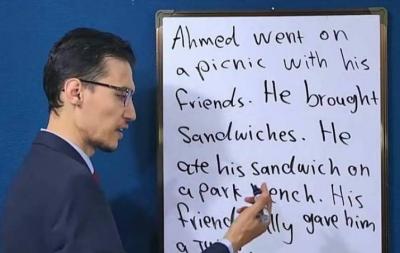 Ahmed went on
a picnic with his
friends. He brought
Sandwiches. He
ate his sandwich on
a park bench. His
friend gave him
a